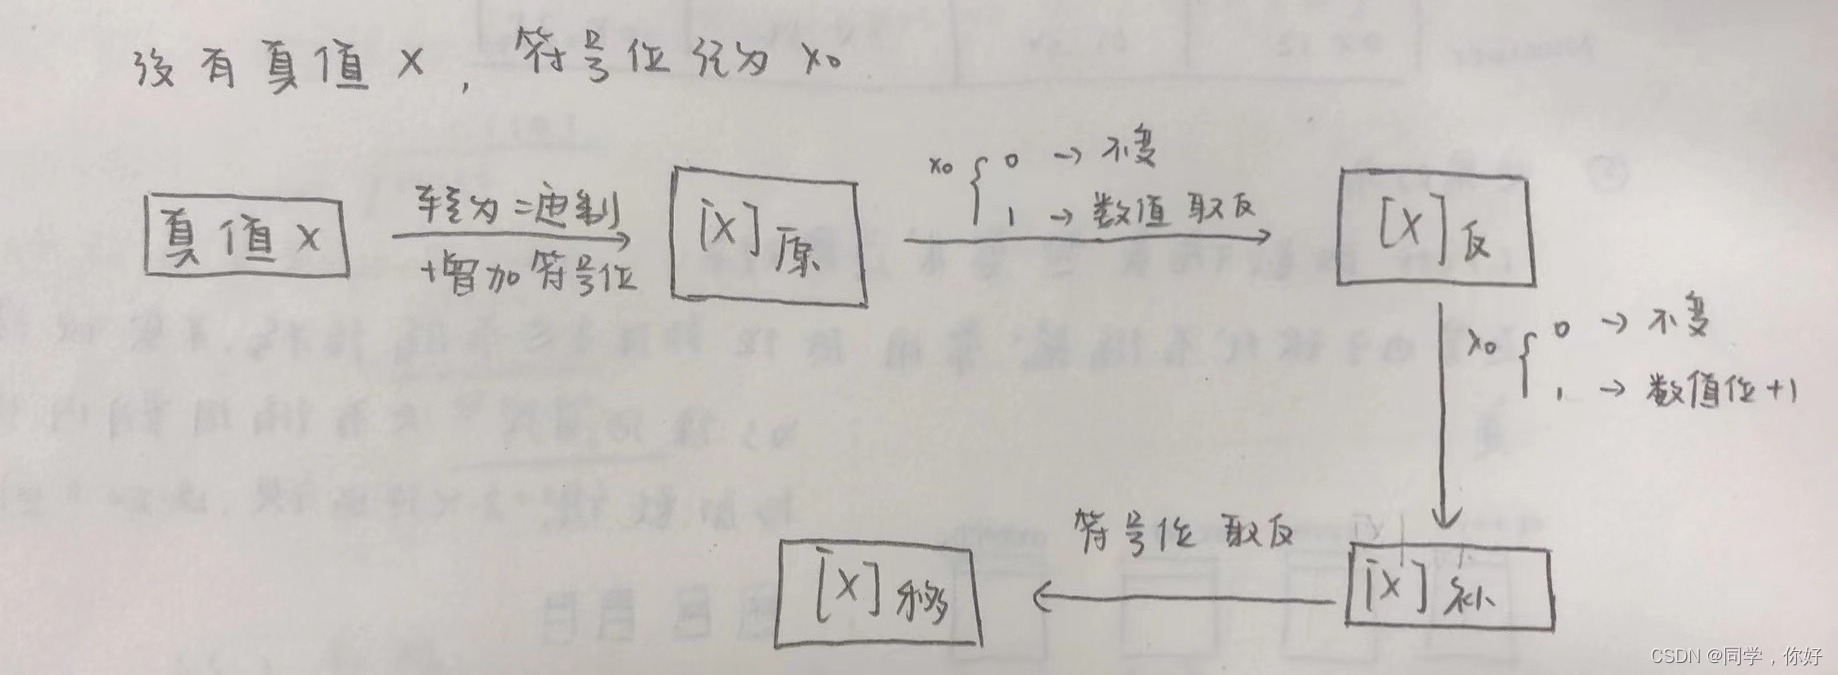 设有真值 X，符号位记为 x₀
真值 X
转为二进制
增加符号位
[X]原
x₀ { 0 → 不变
1 → 数值取反
[X]反
x₀ { 0 → 不变
1 → 数值位+1
[X]补
符号位取反
[X]移
CSDN @同学，你好